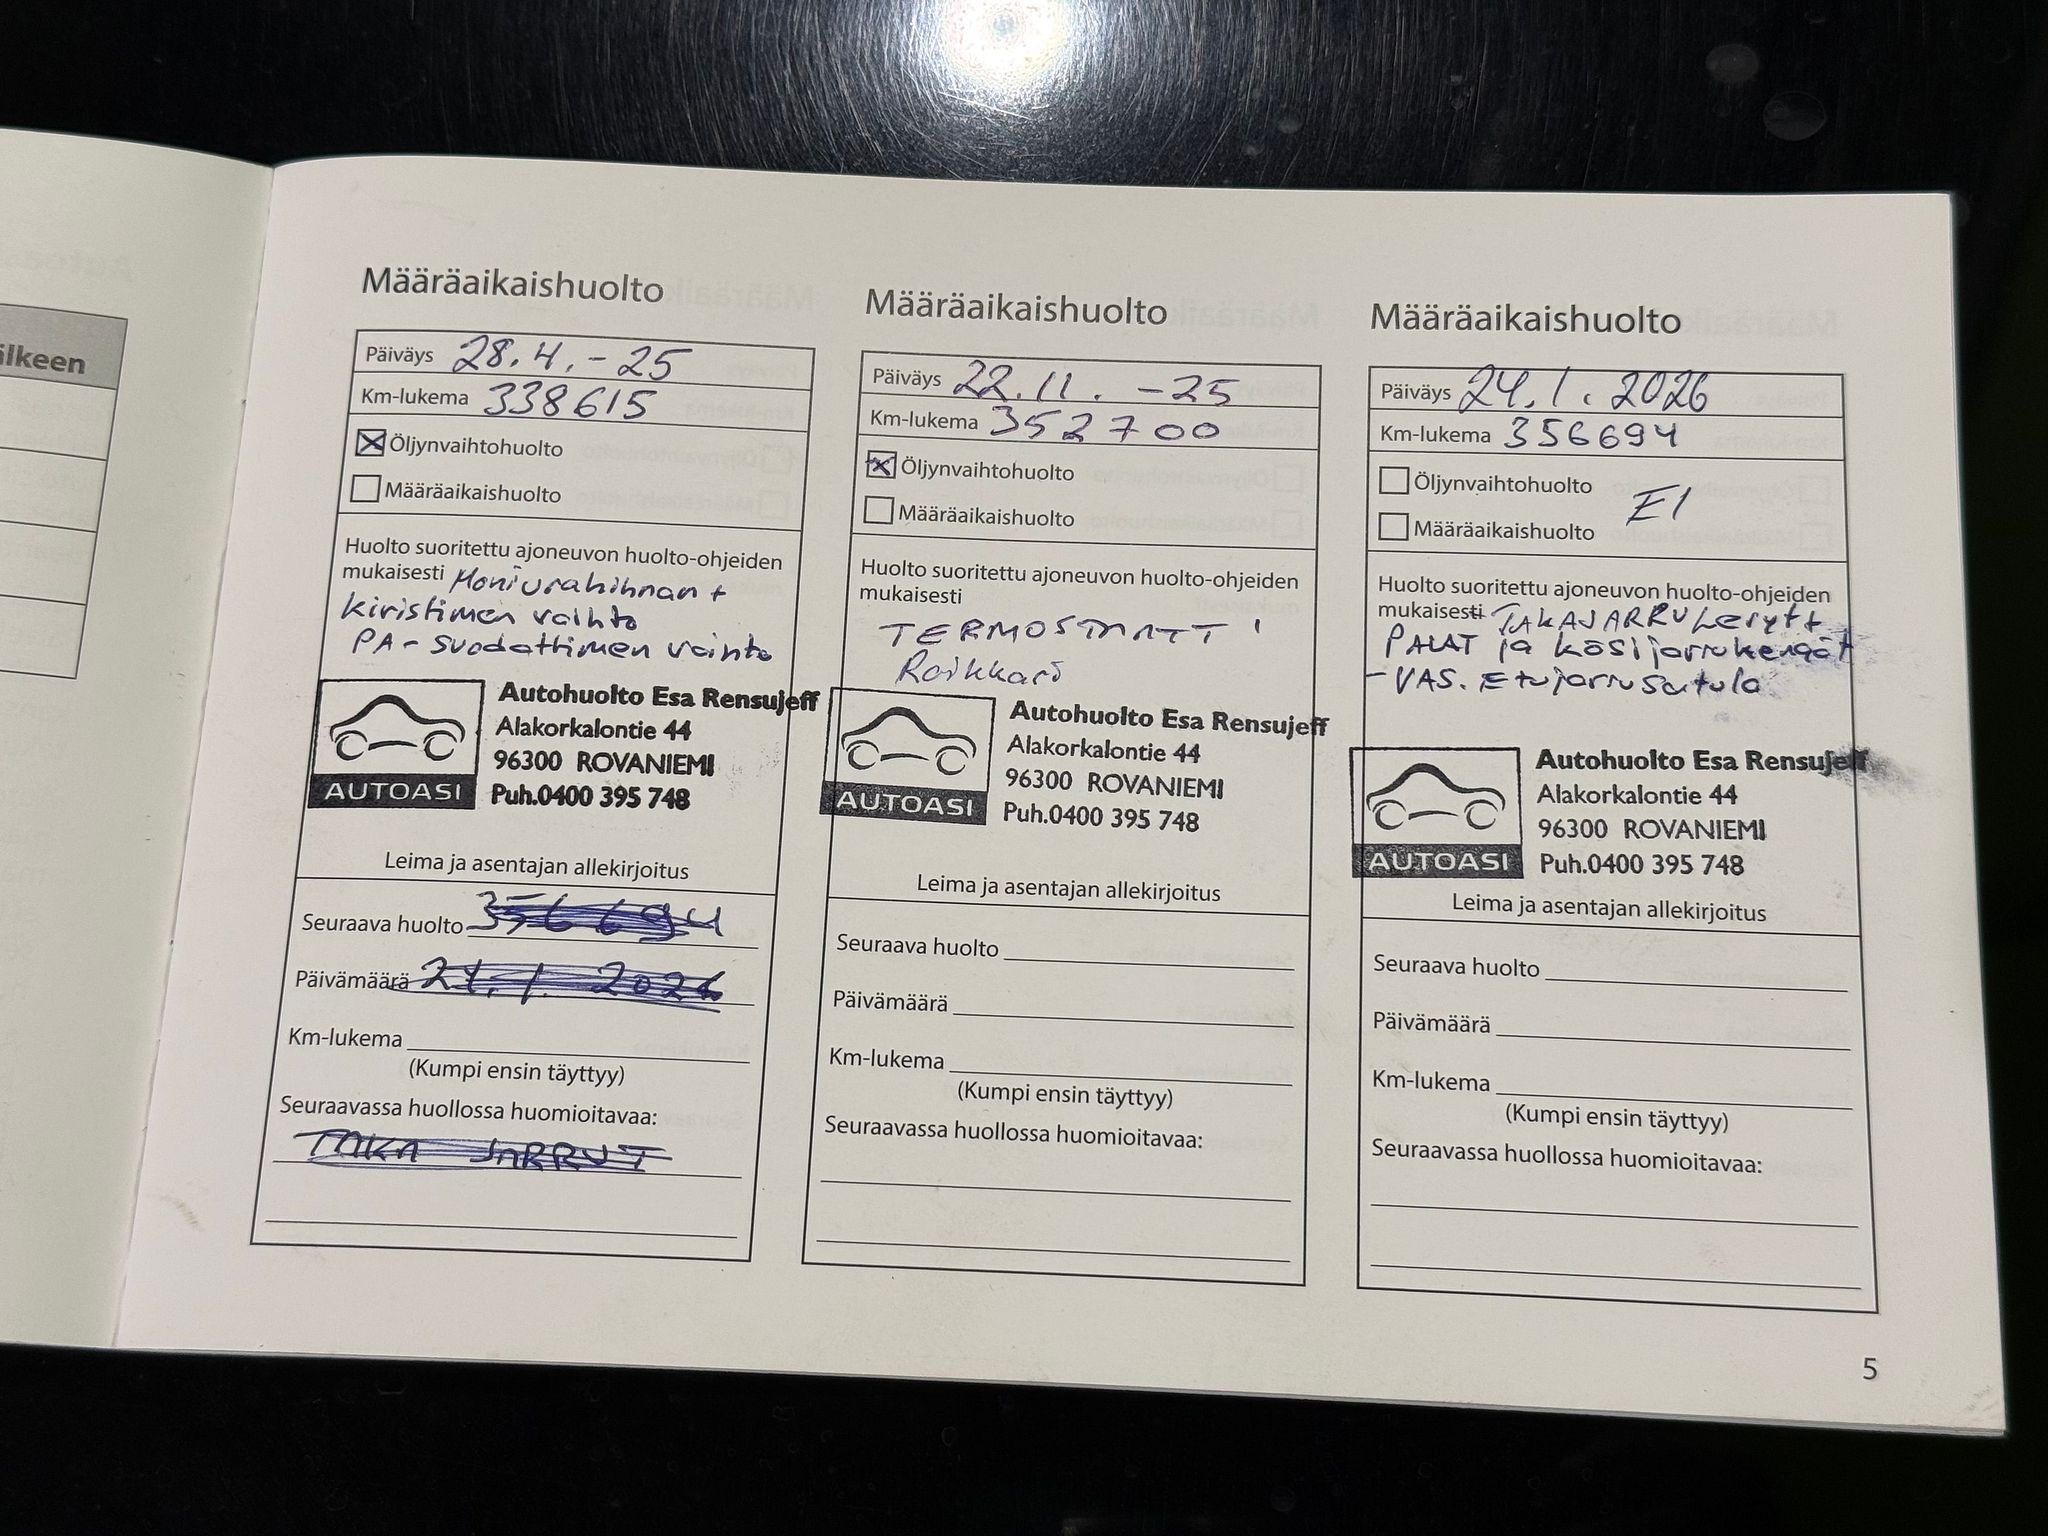 älkeen
Määräaikaishuolto
Päiväys 28.4.-25
Km-lukema 338615
Öljynvaihtohuolto
Määräaikaishuolto
Huolto suoritettu ajoneuvon huolto-ohjeiden
mukaisesti Moniurahihnan +
kiristimen vaihto
PA-suodattimen vaihto
Autohuolto Esa Rensujeff
Alakorkalontie 44
96300 ROVANIEMI
AUTOASI Puh.0400 395 748
Leima ja asentajan allekirjoitus
Seuraava huolto 356694
Päivämäärä 24.1.2026
Km-lukema
(Kumpi ensin täyttyy)
Seuraavassa huollossa huomioitavaa:
TAKA JARRUT
Määräaikaishuolto
Päiväys 22.11.-25
Km-lukema 352700
Öljynvaihtohuolto
Määräaikaishuolto
Huolto suoritettu ajoneuvon huolto-ohjeiden
mukaisesti
TERMOSTAATT
Autohuolto Esa Rensujeff
Alakorkalontie 44
96300 ROVANIEMI
AUTOASI Puh.0400 395 748
Leima ja asentajan allekirjoitus
Seuraava huolto
Päivämäärä
Km-lukema
(Kumpi ensin täyttyy)
Seuraavassa huollossa huomioitavaa:
Määräaikaishuolto
Päiväys 24.1.2026
Km-lukema 356694
Öljynvaihtohuolto
EI
Määräaikaishuolto
Huolto suoritettu ajoneuvon huolto-ohjeiden
mukaisesti TAKAJARRU Levyt +
PALAT ja käsijarrukengät
-VAS. Etujarrusatula
Autohuolto Esa Rensujeff
Alakorkalontie 44
96300 ROVANIEMI
AUTOASI Puh.0400 395 748
Leima ja asentajan allekirjoitus
Seuraava huolto
Päivämäärä
Km-lukema
(Kumpi ensin täyttyy)
Seuraavassa huollossa huomioitavaa:
5